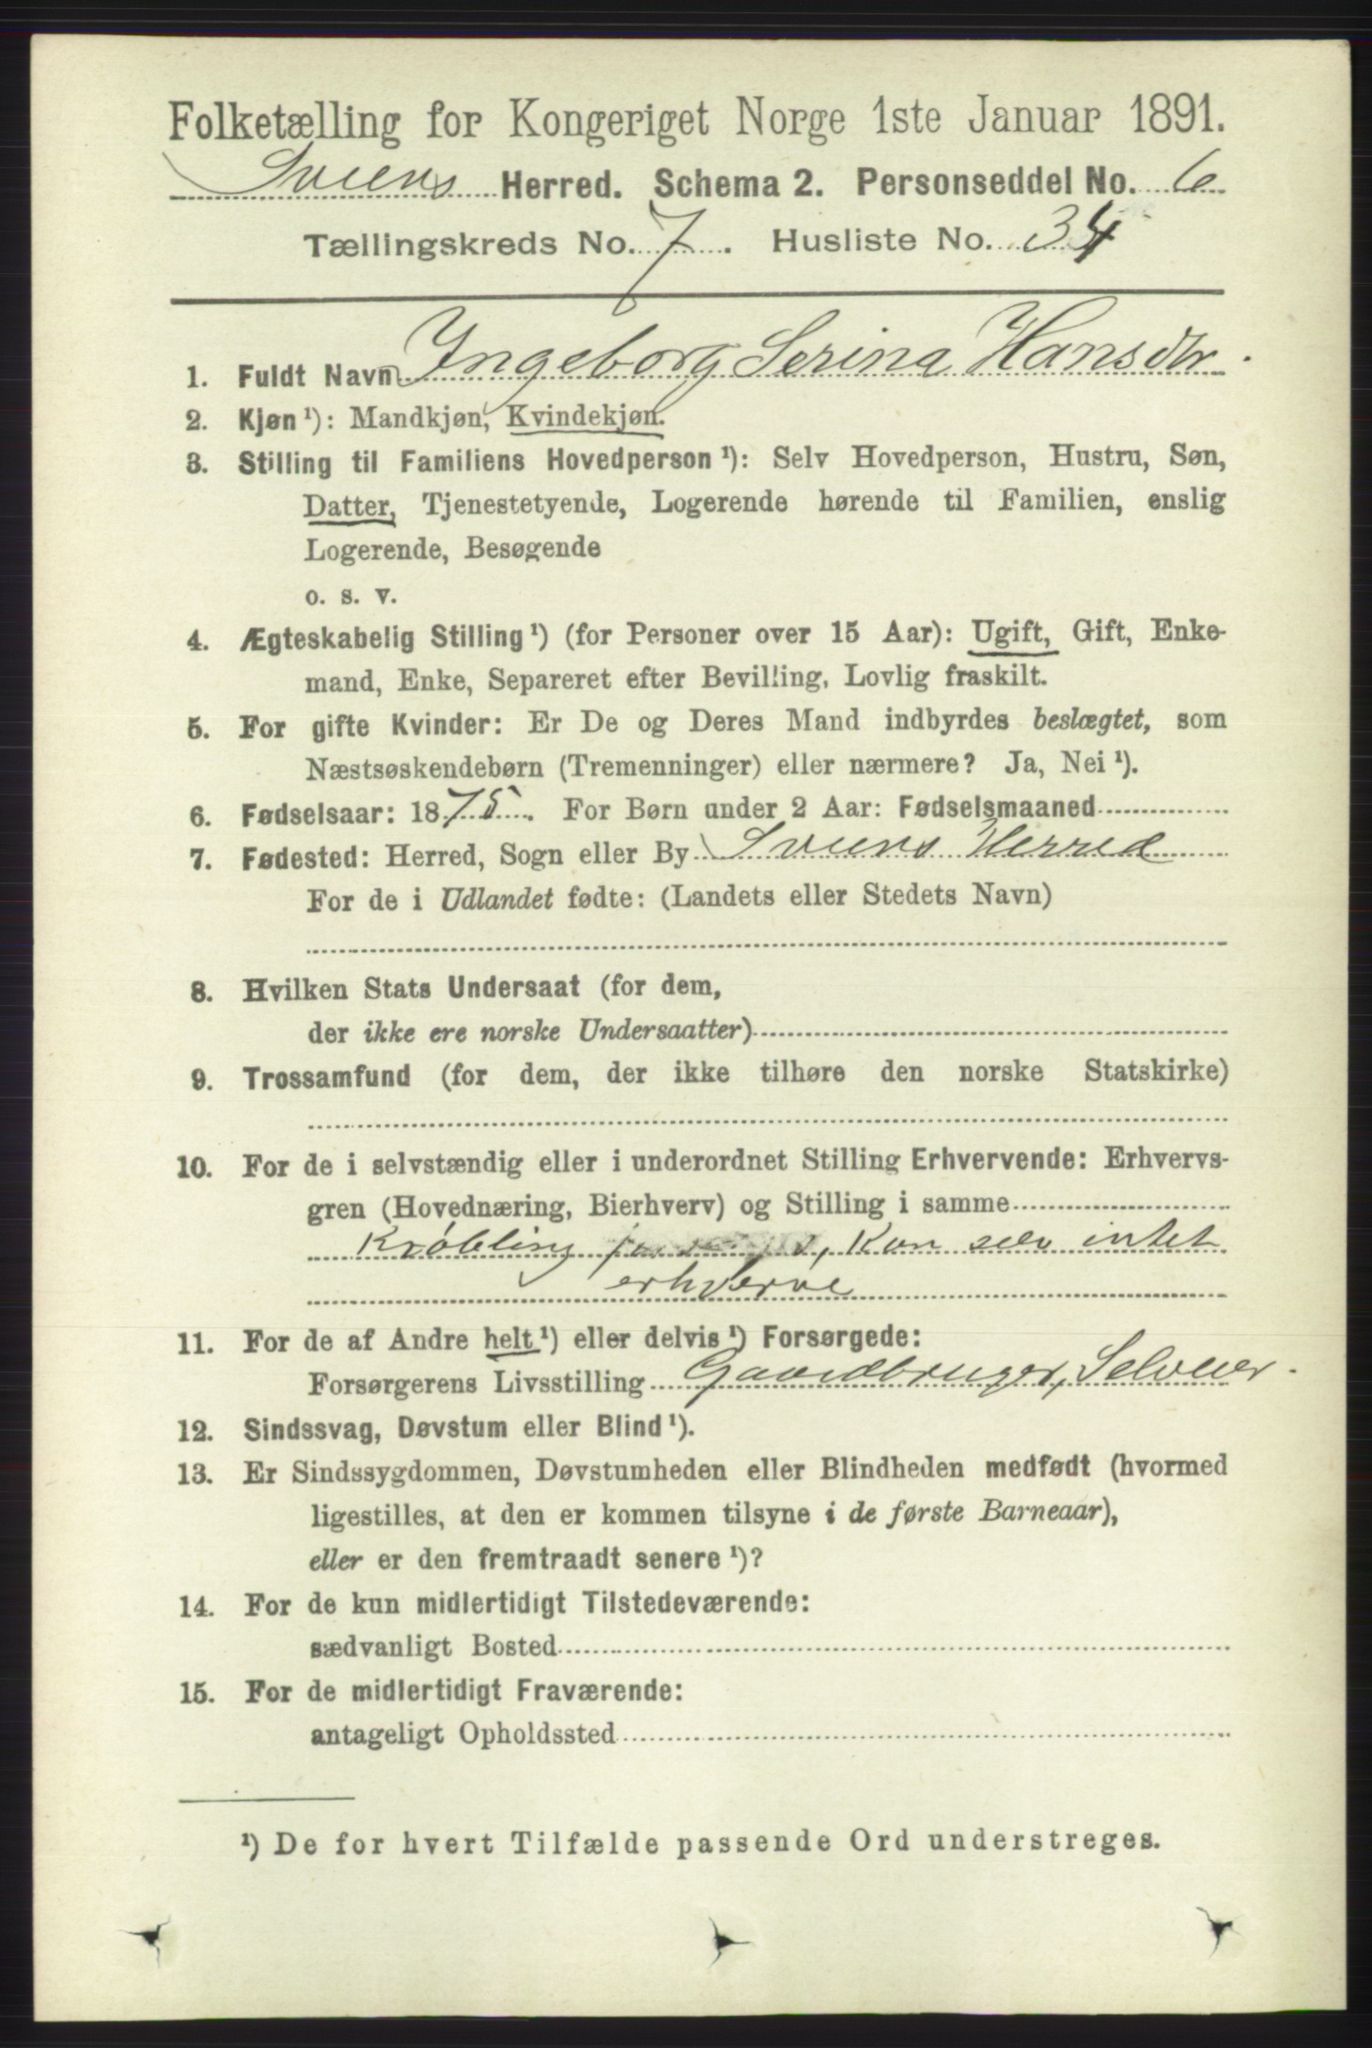 Folketælling for Kongeriget Norge 1ste Januar 1891.
Sveens Herred. Schema 2. Personseddel No. 6
Tællingskreds No. 7. Husliste No. 34
1. Fuldt Navn Ingeborg Serina Hansdtr.
2. Kjøn¹): Mandkjøn, Kvindekjøn.
3. Stilling til Familiens Hovedperson¹): Selv Hovedperson, Hustru, Søn,
Datter, Tjenestetyende, Logerende hørende til Familien, enslig
Logerende, Besøgende
o. s. v.
4. Ægteskabelig Stilling¹) (for Personer over 15 Aar): Ugift, Gift, Enke-
mand, Enke, Separeret efter Bevilling, Lovlig fraskilt.
5. For gifte Kvinder: Er De og Deres Mand indbyrdes beslægtet, som
Næstsøskendebørn (Tremenninger) eller nærmere? Ja, Nei¹).
6. Fødselsaar: 1875. For Børn under 2 Aar: Fødselsmaaned
7. Fødested: Herred, Sogn eller By Sveens Herred
For de i Udlandet fødte: (Landets eller Stedets Navn)
8. Hvilken Stats Undersaat (for dem,
der ikke ere norske Undersaatter)
9. Trossamfund (for dem, der ikke tilhøre den norske Statskirke)
10. For de i selvstændig eller i underordnet Stilling Erhvervende: Erhvervs-
gren (Hovednæring, Bierhverv) og Stilling i samme
Krøbling kan selv intet
erhverve
11. For de af Andre helt¹) eller delvis¹) Forsørgede:
Forsørgerens Livsstilling Gaardbruger, Selveier.
12. Sindssvag, Døvstum eller Blind¹).
13. Er Sindssygdommen, Døvstumheden eller Blindheden medfødt (hvormed
ligestilles, at den er kommen tilsyne i de første Barneaar),
eller er den fremtraadt senere¹)?
14. For de kun midlertidigt Tilstedeværende:
sædvanligt Bosted
15. For de midlertidigt Fraværende:
antageligt Opholdssted
¹) De for hvert Tilfælde passende Ord understreges.